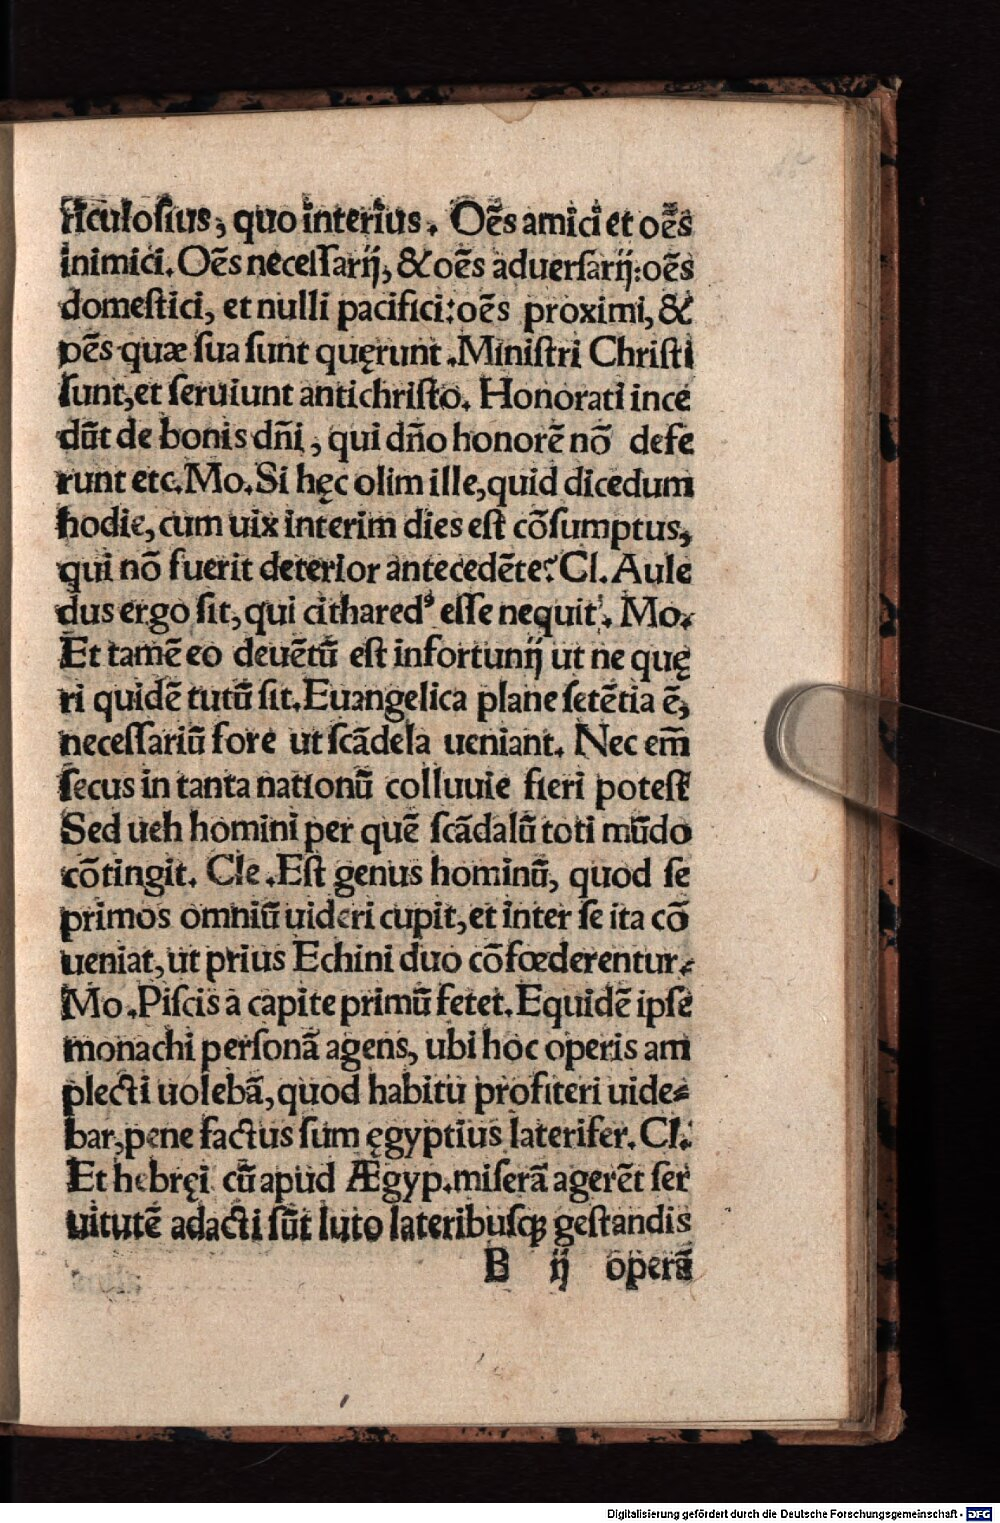 riculosius, quo interius. Oẽs amici et oẽs
inimici. Oẽs necessarij, & oẽs aduersarij: oẽs
domestici, et nulli pacifici: oẽs proximi, &
oẽs quæ sua sunt quęrunt. Ministri Christi
sunt, et seruiunt antichristo. Honorati ince
dũt de bonis dñi, qui dño honorẽ nõ defe
runt etc. Mo. Si hęc olim ille, quid dicedum
hodie, cum uix interim dies est cõsumptus,
qui nõ fuerit deterior antecedẽte? Cl. Aule
dus ergo sit, qui citharedꝰ esse nequit. Mo.
Et tamẽ eo deuẽtũ est infortunij ut ne quę
ri quidẽ tutũ sit. Euangelica plane setẽtia ẽ,
necessariũ fore ut scãdela ueniant. Nec em̃
secus in tanta nationũ colluuie fieri potest
Sed ueh homini per quẽ scãdalũ toti mũdo
cõtingit. Cle. Est genus hominũ, quod se
primos omniũ uideri cupit, et inter se ita cõ
ueniat, ut prius Echini duo cõfœderentur.
Mo. Piscis a capite primũ fetet. Equidẽ ipse
monachi personã agens, ubi hoc operis am
plecti uolebã, quod habitu profiteri uide⸗
bar, pene factus sum ęgyptius laterifer. Cl.
Et hebręi cũ apud Ægyp. miserã agerẽt ser
uitutẽ adacti sũt luto lateribusqꝫ gestandis
B ij operã
Digitalisierung gefördert durch die Deutsche Forschungsgemeinschaft - DFG